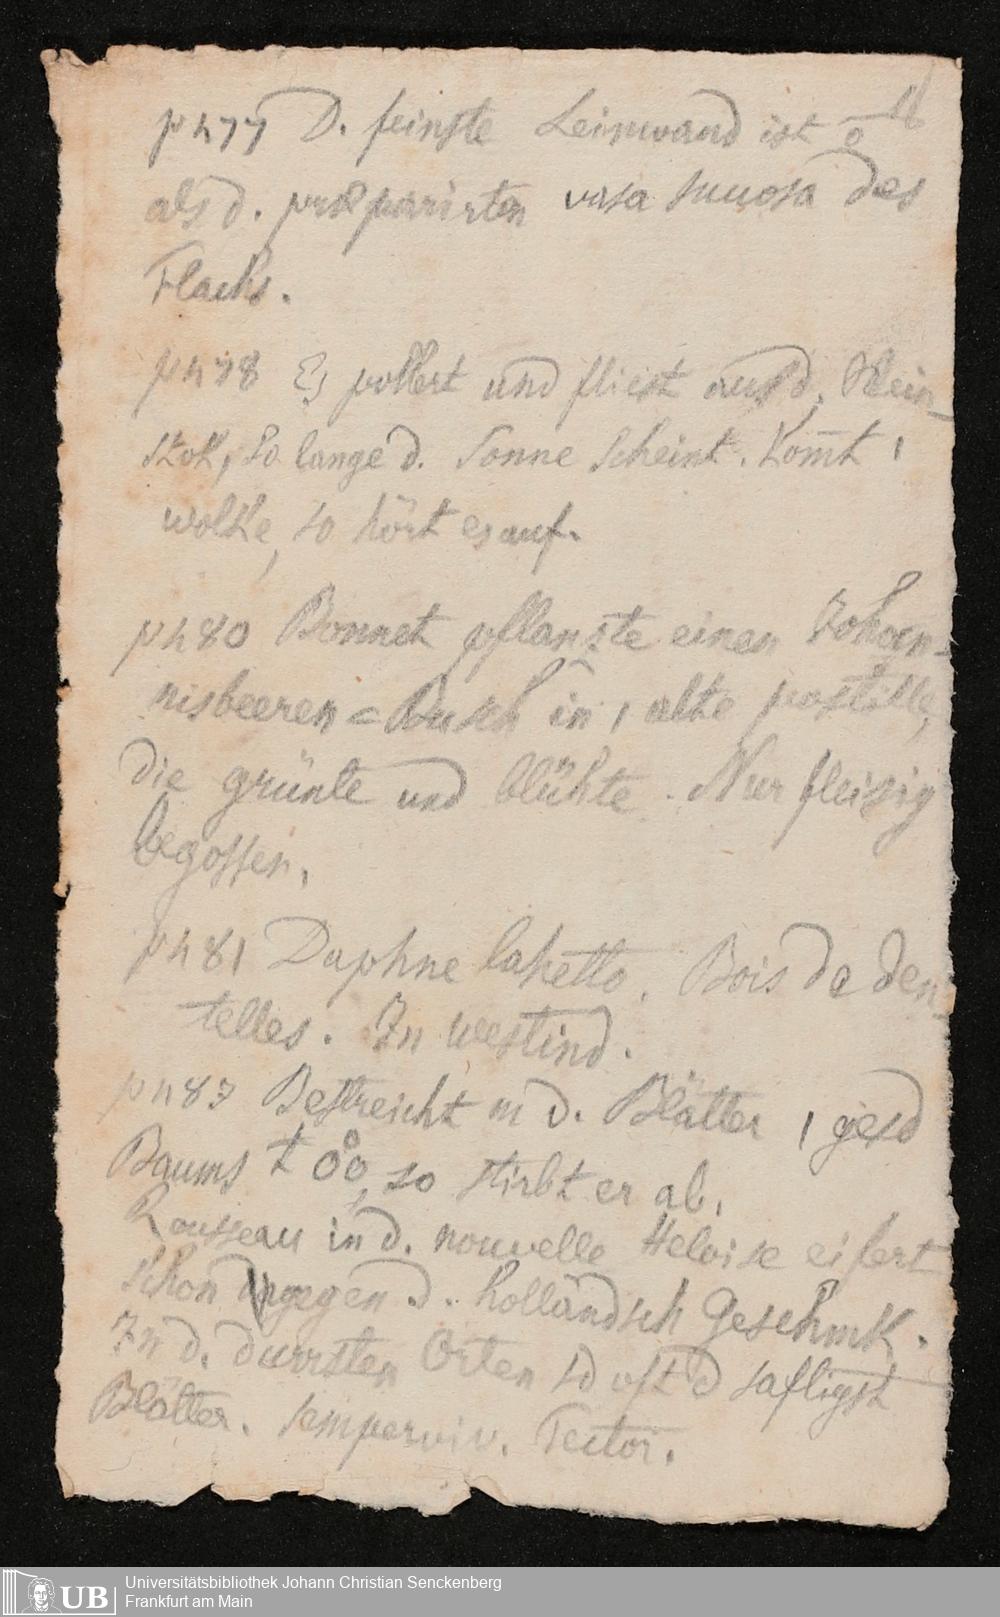 p 477 D. feinste Leinwand ist
als d. præparirten vasa
Flachs.
p 478 Es pollert und fliest aus d. Wein-
stok, so lange d. Sonne scheint. Komt 1
wolke, so hört es auf.
p 480 Bonnet pflanzte einen Johan-
nisbeeren=Busch in 1 alte postille,
die grünte und blühte. Nur fleisig
begossen.
p 481 Daphne lahetto. Bois de den-
telles. In westind.
p 483 Bestreicht m d. Blätter 1 gesd
Baums so stirbt er ab.
Rousseau in d. nouvelle Heloise eifert
schon gegen d. holländsch Geschmk.
In d. durrsten Orten sd oft d saftigst
Blätter. Semperviv. Tector.
UB
Universitätsbibliothek Johann Christian Senckenberg
Frankfurt am Main